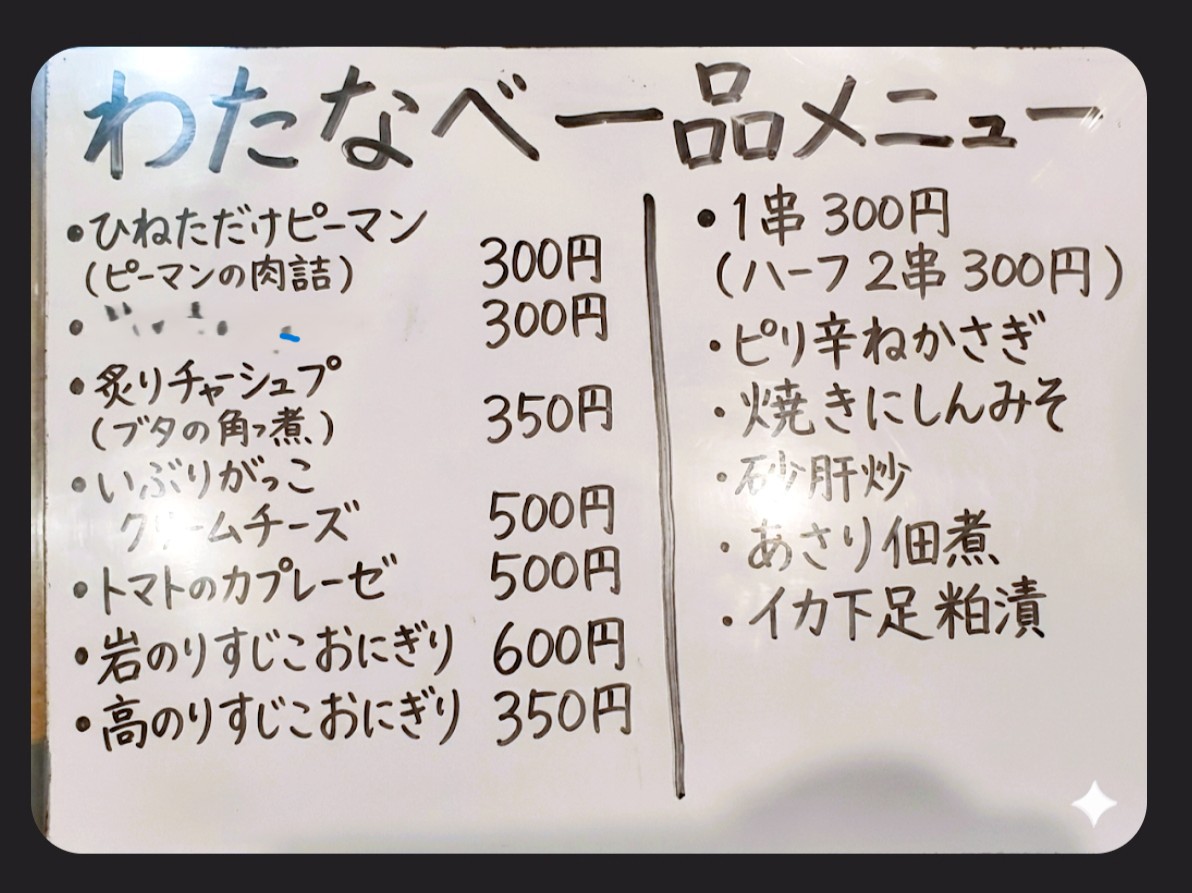 わたなべ一品メニュー
・ひねただけピーマン
(ピーマンの肉詰) 300円
・ 300円
・炙りチャーシュプ
(ブタの角っ煮) 350円
・いぶりがっこ
クリームチーズ 500円
・トマトのカプレーゼ 500円
・岩のりすじこおにぎり 600円
・高のりすじこおにぎり 350円
・1串 300円
(ハーフ 2串 300円)
・ピリ辛ねかさぎ
・焼きにしんみそ
・砂肝炒
・あさり佃煮
・イカ下足粕漬